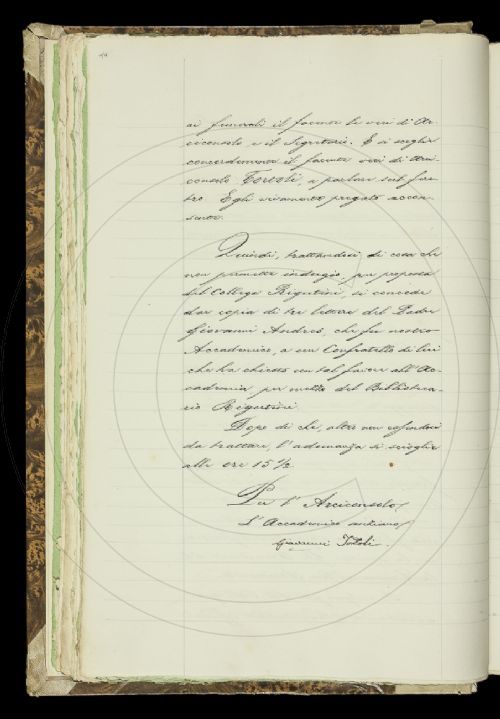 ai funerali il facente le veci di Ar-
ciconsolo e il Segretario. E si sceglie
concordemente il facente veci di Arci-
consolo Tortoli, a parlare sul fere-
tro. Egli vivamente pregato accon-
sente.
Quindi, trattandosi di cosa che
non permette indugio, su proposta
del Collega Rigutini, si concede
dar copia di tre lettere del Padre
Giovanni Andres, che fu nostro
Accademico, a un Confratello di lui
che ha chiesto un tal favore all'Ac-
cademia per mezzo del Biblioteca-
rio Rigutini.
Dopo di che, altro non essendoci
da trattare, l'adunanza si scioglie
alle ore 15 1/2
Per l'Arciconsolo
L'Accademico anziano
Giovanni Tortoli